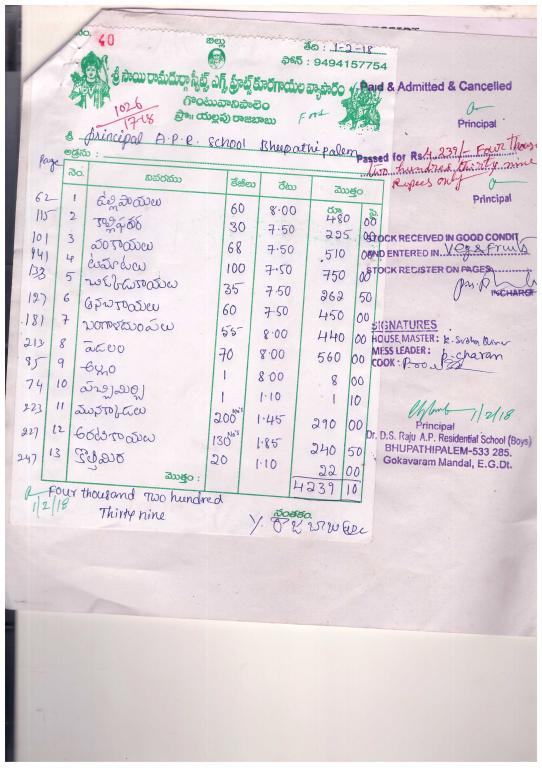 నం. 40
బిల్లు
తేది : 1-2-18
ఫోన్ : 9494157754
శ్రీ సాయి రామదుర్గా స్వీట్స్ ఎగ్స్ ఫ్రూట్స్ కూరగాయల వ్యాపారం
గొంటువానిపాలెం
ప్రొః యల్లపు రాజబాబు
1026
17-18
శ్రీ Principal A.P.R. School Bhupathipalem
అడ్రసు :
Page నెం. వివరము కేజీలు రేటు మొత్తం
రూ పై
62 1 ఉల్లిపాయలు 60 8.00 480 00
115 2 30 7.50 225 00
101 3 వంకాయలు 68 7.50 510 00
141 4 టమాటలు 100 7.50 750 00
133 5 35 7.50 262 50
127 6 ఆనబకాయలు 60 7.50 450 00
181 7 బంగాళదుంపలు 55 8.00 440 00
213 8 70 8.00 560 00
85 9 అల్లం 1 8.00 8 00
74 10 పచ్చిమిర్చి 1 1.10 1 10
223 11 200 No's 1.45 290 00
227 12 అరటికాయలు 130 No's 1.85 240 50
247 13 కొత్తిమిర 20 1.10 22 00
మొత్తం : 4239 10
Four thousand Two hundred
1/2/18
Thirty nine
సంతకం.
Y. రాజబాబు
Paid & Admitted & Cancelled
Principal
Passed for Rs 4,239/- Four Thous
two hundred thirty nine
Rupees only
Principal
STOCK RECEIVED IN GOOD CONDIT
AND ENTERED IN Veg & Fruits
STOCK REGISTER ON PAGES
INCHARGE
SIGNATURES
HOUSE MASTER :
MESS LEADER : P. charan
COOK :
1/2/18
Principal
Dr. D.S. Raju A.P. Residential School (Boys)
BHUPATHIPALEM-533 285.
Gokavaram Mandal, E.G.Dt.